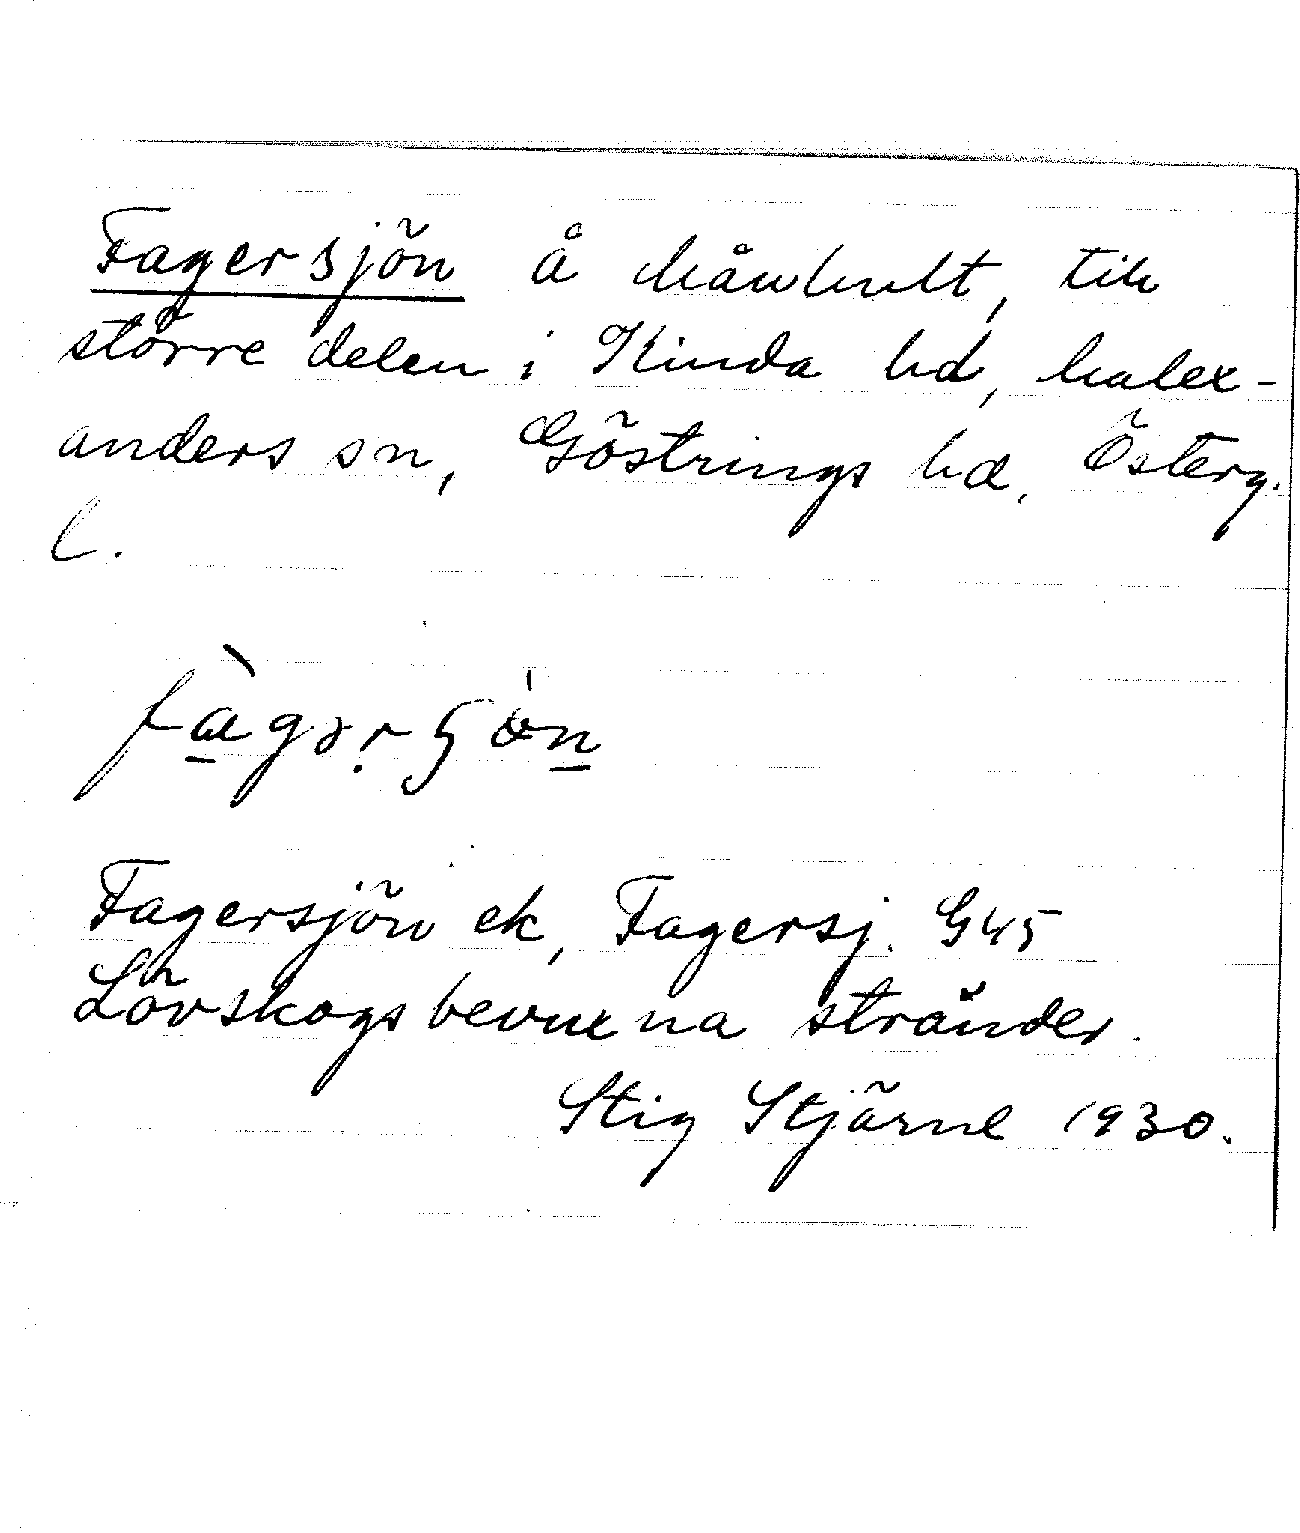 Fagersjön å Månhult, till
större delen i Kinda hd, Malex-
anders sn, Göstrings hd, Österg.
l.
Fagersjön ek, Fagersj. G45
Lövskogsbevuxna stränder.
Stig Stjärne 1930.